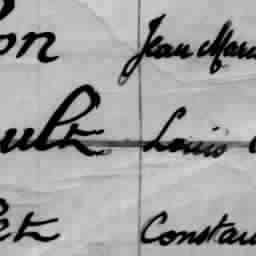 on Jean Marc
ult Louis
et Constan